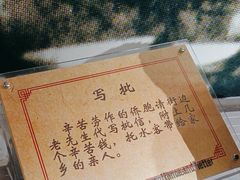 写批
辛苦劳作的侨胞请街边
老先生代写批信，附上几
个辛苦钱，托水客带给家
乡的亲人。